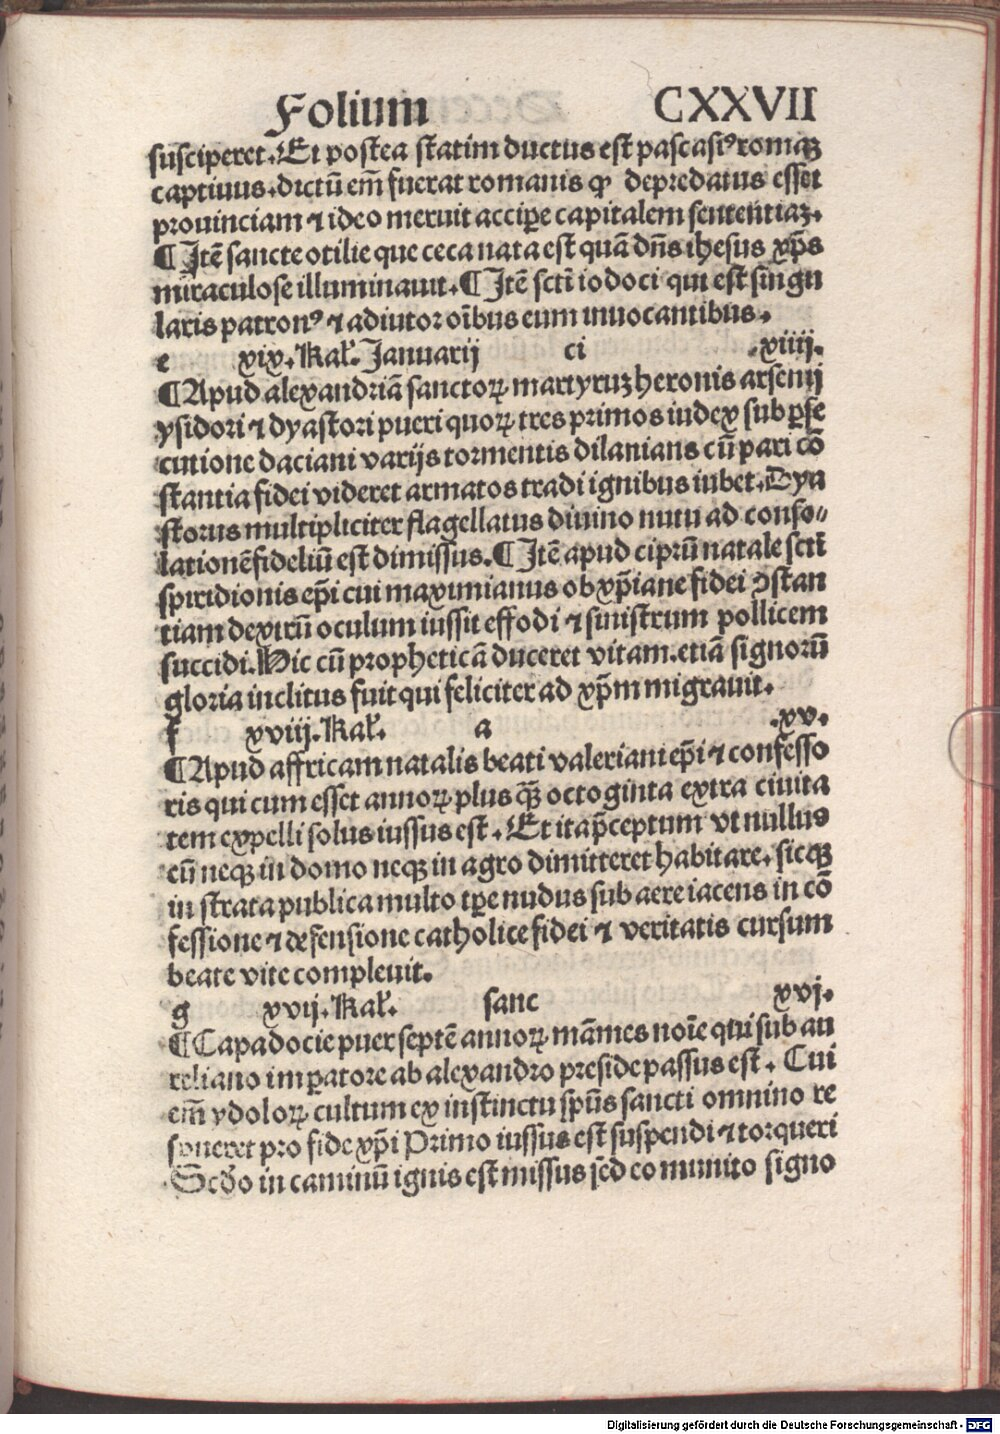 Folium CXXVII
susciperet. Et postea statim ductus est pascasiꝰ romaꝫ
captiuus. dictū em̄ fuerat romanis ꝙ depredatus esset
prouinciam ⁊ ideo meruit accip̲e capitalem sententiaꝫ.
¶ Itē sancte otilie que ceca nata est quā dn̄s ihesus xp̄s
miraculose illuminauit. ¶ Itē scti̅ iodoci qui est singu
laris patronꝰ ⁊ adiutor oībus eum inuocantibus.
e xix. kal̕. Januarij ci .xiiij.
¶ Apud alexandriā sanctoꝝ martyruꝫ heronis arsenij
ysidori ⁊ dyastori pueri quoꝝ tres primos iudex sub ꝑse
cutione daciani varijs tormentis dilanians cū pari cō
stantia fidei videret armatos tradi ignibus iubet. Dya
storus multipliciter flagellatus diuino nutu ad conso⸗
lationē fideliū est dimissus. ¶ Itē apud ciprū natale scti̅
spiridionis ep̄i cui maximianus ob xp̄iane fidei ꝯstan
tiam dextrū oculum iussit effodi ⁊ sinistrum pollicem
succidi. Hic cū propheticā duceret vitam. etiā signorū
gloria inclitus fuit qui feliciter ad xp̄m migrauit.
f xviij. kal̕. a .xv.
¶ Apud affricam natalis beati valeriani ep̄i ⁊ confesso
ris qui cum esset annoꝝ plus ꝙ̄ octoginta extra ciuita
tem expelli solus iussus est. Et ita p̄ceptum vt nullus
eū neqꝫ in domo neqꝫ in agro dimitteret habitare. sicqꝫ
in strata publica multo tp̲e nudus sub aere iacens in cō
fessione ⁊ defensione catholice fidei ⁊ veritatis cursum
beate vite compleuit.
g xvij. kal̕. sanc xvj.
¶ Capadocie puer septē annoꝝ māmes noīe qui sub au
reliano imꝑatore ab alexandro preside passus est. Cui
em̄ ydoloꝝ cultum ex instinctu spūs sancti omnino re
spueret pro fide xp̄i Primo iussus est suspendi ⁊ torqueri
Scd̄o in caminū ignis est missus sed eo munito signo
Digitalisierung gefördert durch die Deutsche Forschungsgemeinschaft - DFG